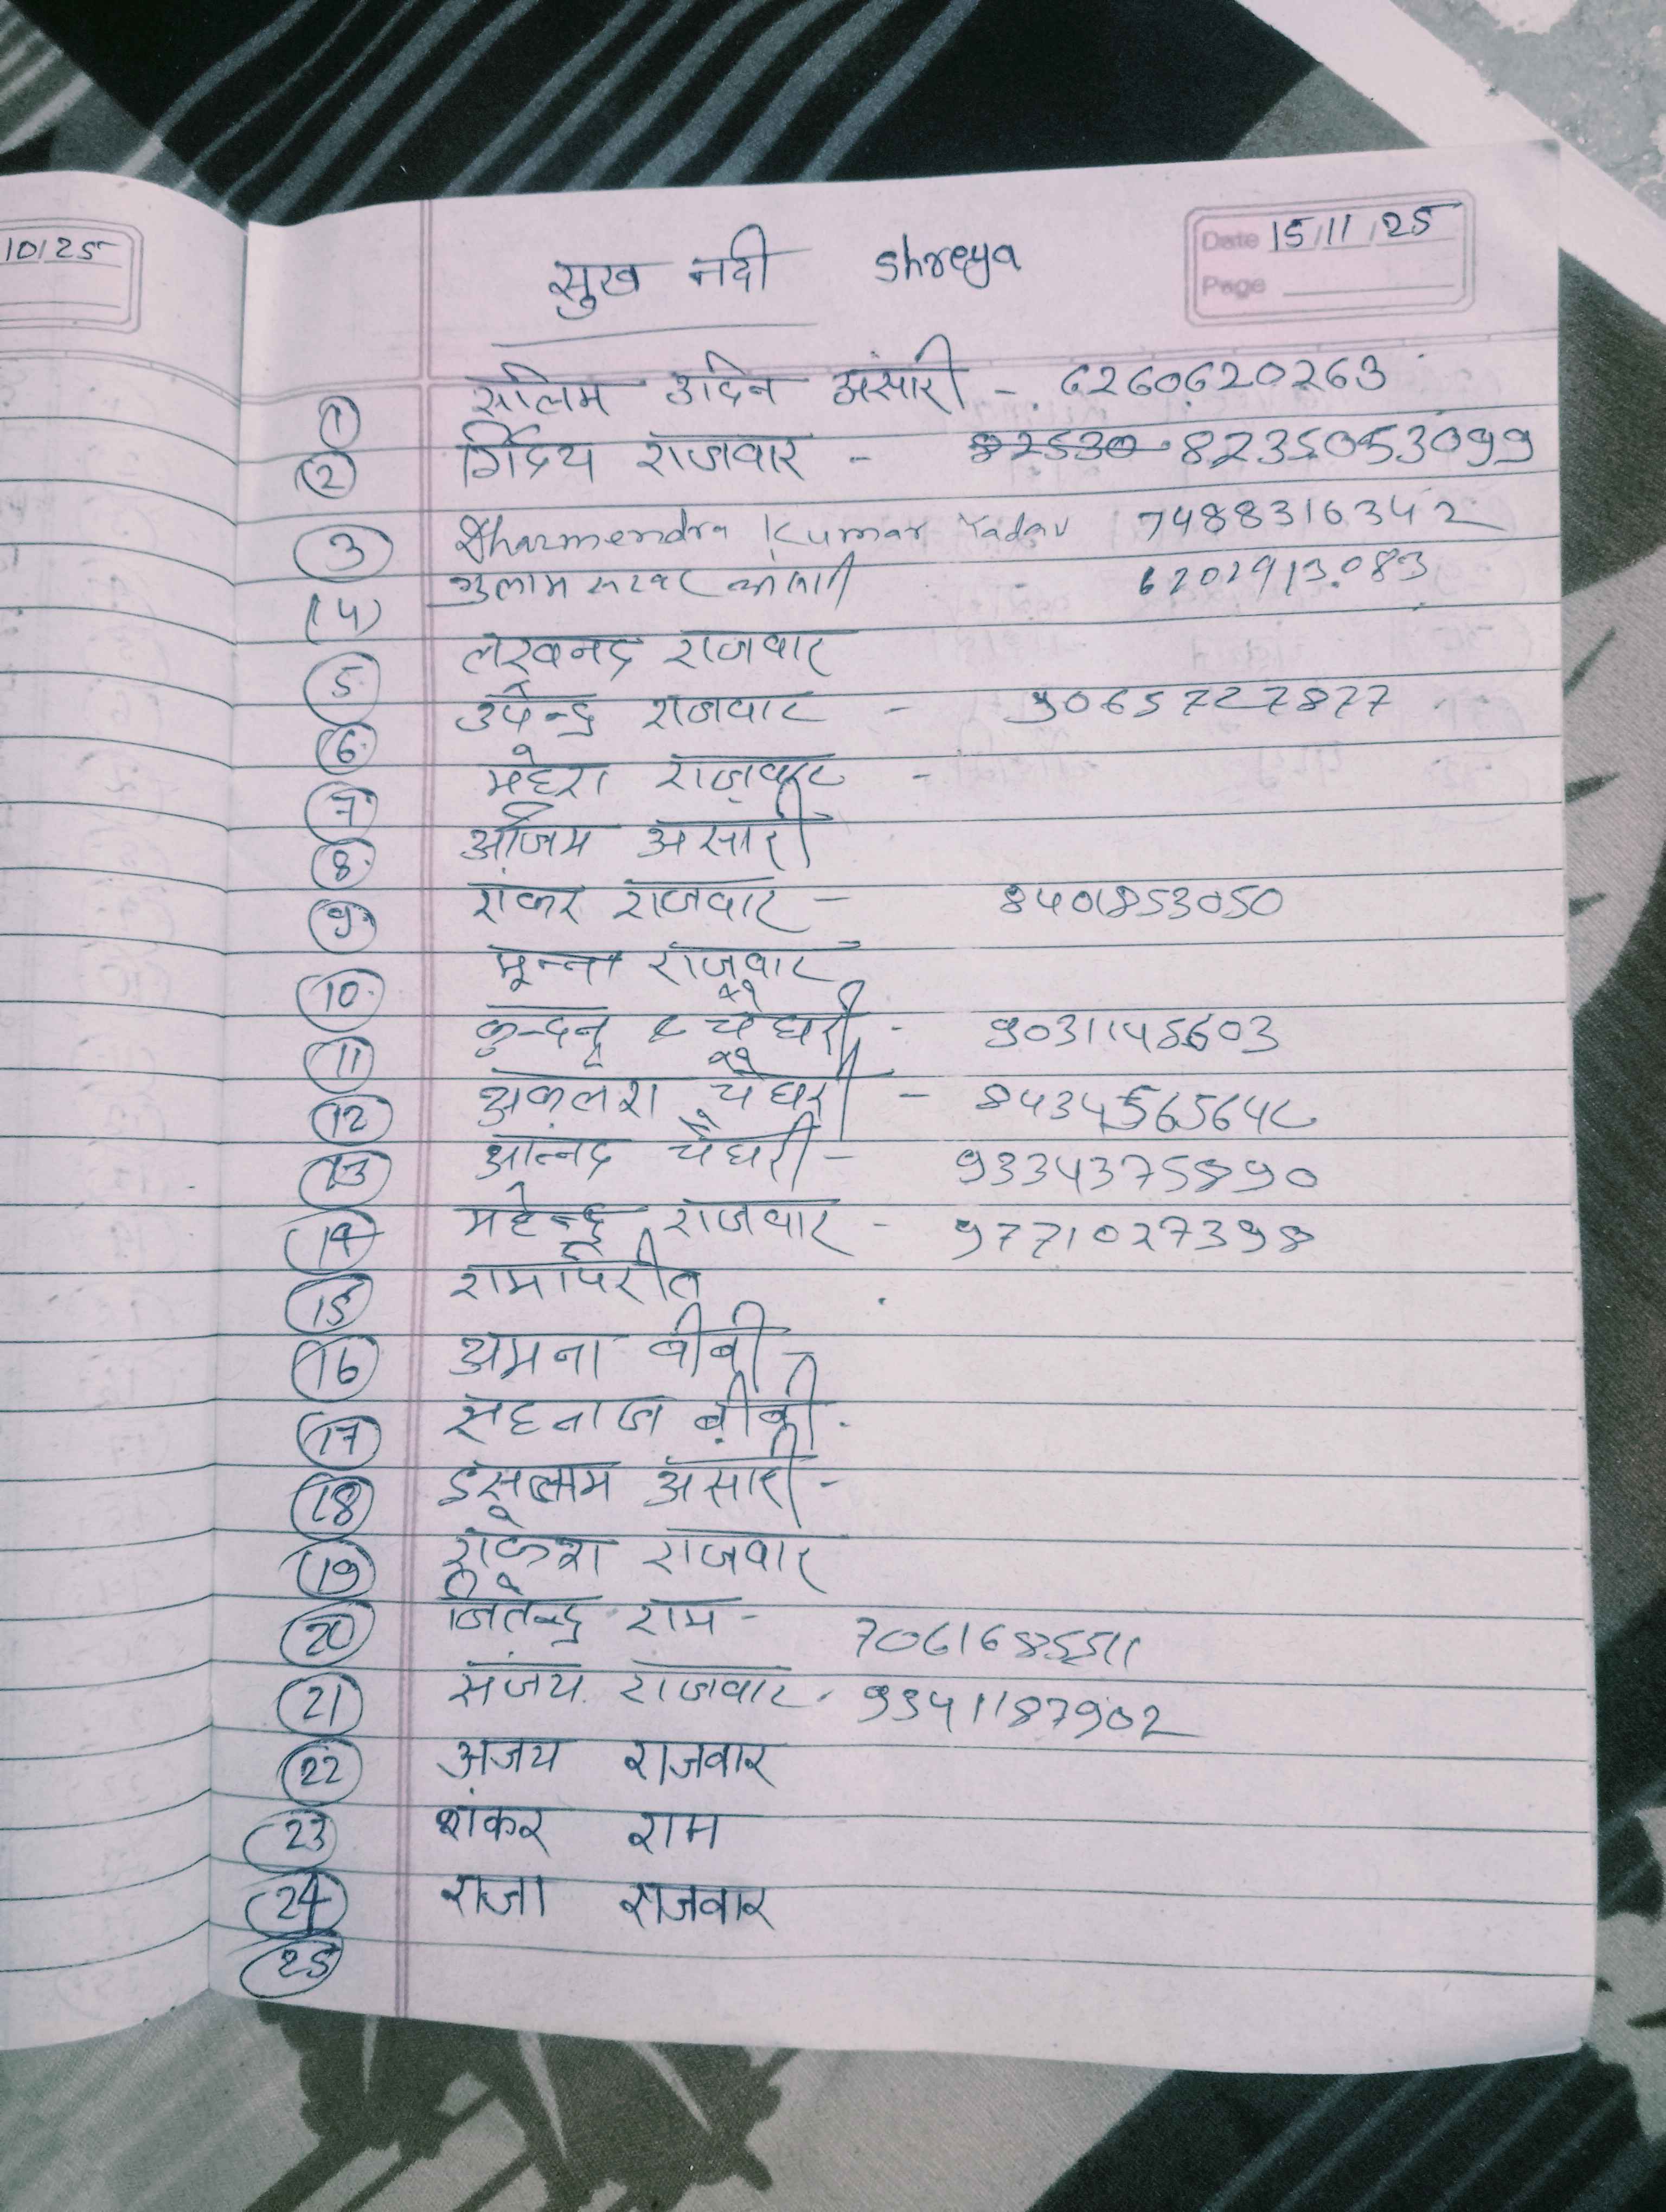 10/25
Date 15/11/25
Page
सुख नदी shreya
① सलिम उदिन अंसारी - 6260620263
② राजवार - 82530 8235053099
③ Dharmendra Kumar Yadav 7488316342
(4) गुलाम सरवर अंसारी 6202913083
⑤ लखनद्र राजवार
⑥ उपेन्द्र राजवार - 9065727877
⑦ महेश राजवार -
⑧ अजिम अंसारी
⑨ शंकर राजवार - 8401853050
⑩ मून्ना राजवार
⑪ कुन्दन चौधरी - 9031145603
⑫ अकलेश चौधरी -
⑬ आन्नद चौधरी - 9334375890
⑭ महेन्द्र राजवार - 9771027398
⑮
⑯ अमना बीबी -
⑰ सहनाज बीबी -
⑱ इसलाम अंसारी -
⑲ राकेश राजवार
⑳ जितेन्द्र राम - 7061685511
㉑ संजय राजवार - 9341187902
㉒ अजय राजवार
㉓ शंकर राम
㉔ राजा राजवार
㉕